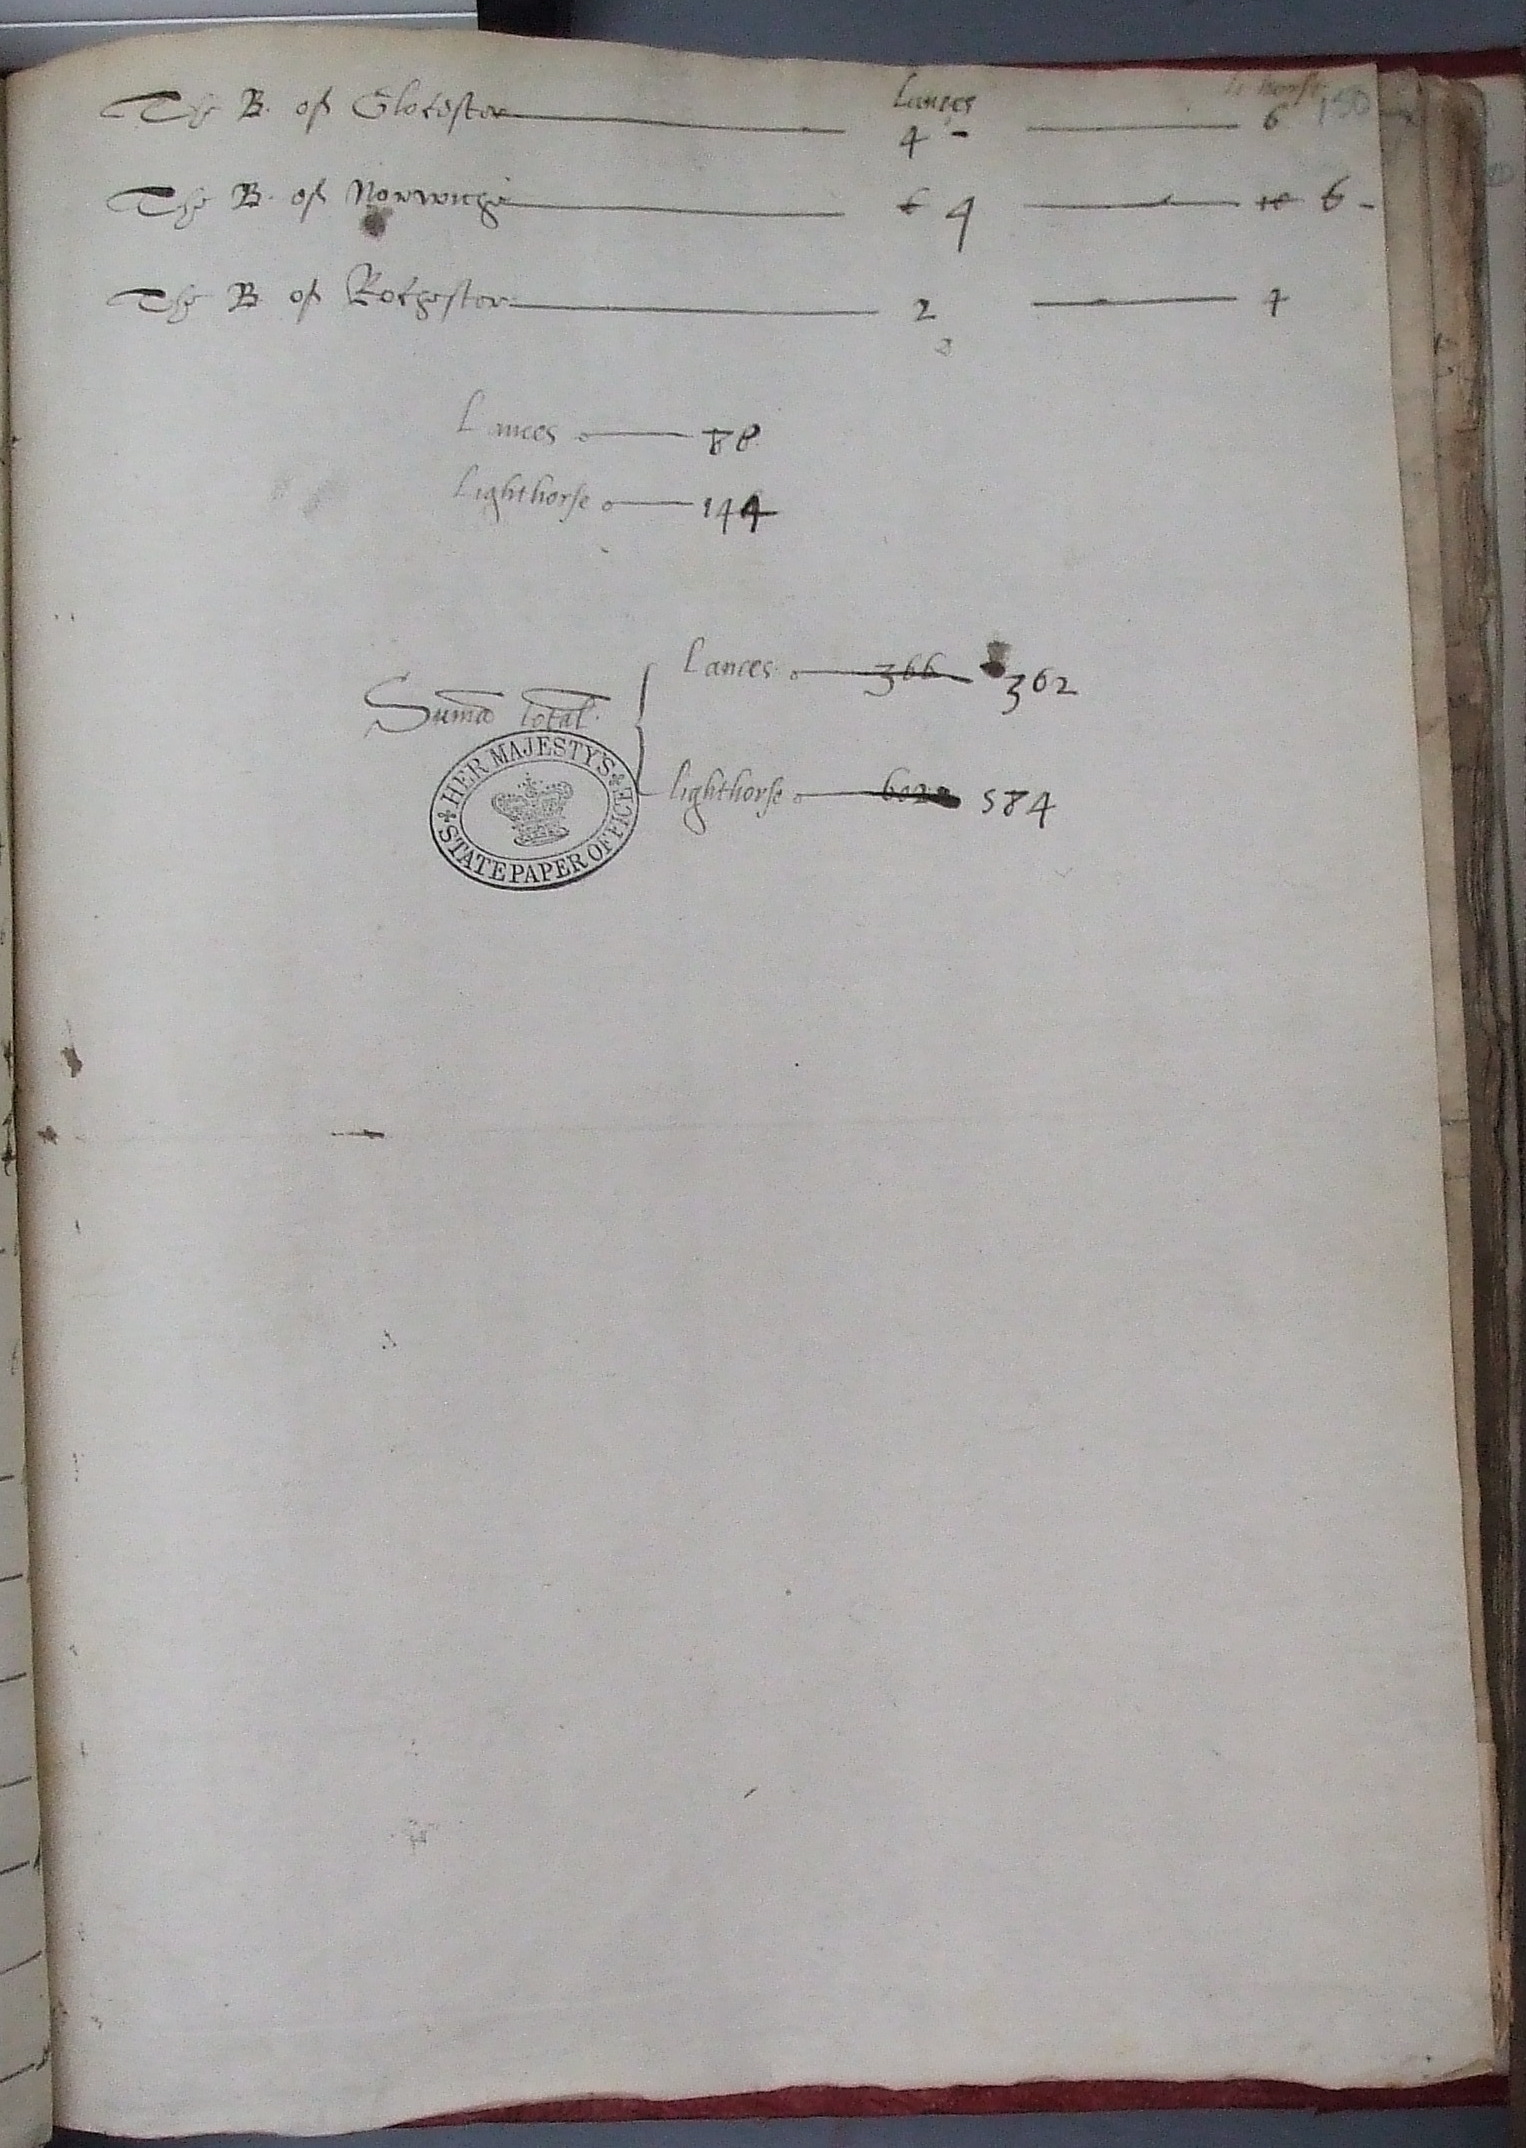 Lances li horse 150
The B. of Glocester 4 - 6
The B. of Norwiche 6 4 10 6 -
The B of Rochester 2 4
2
Lances 88
Lighthorse 144
Lances 366 362
Suma total
lighthorse 602 584
HER MAJESTY'S STATE PAPER OFFICE